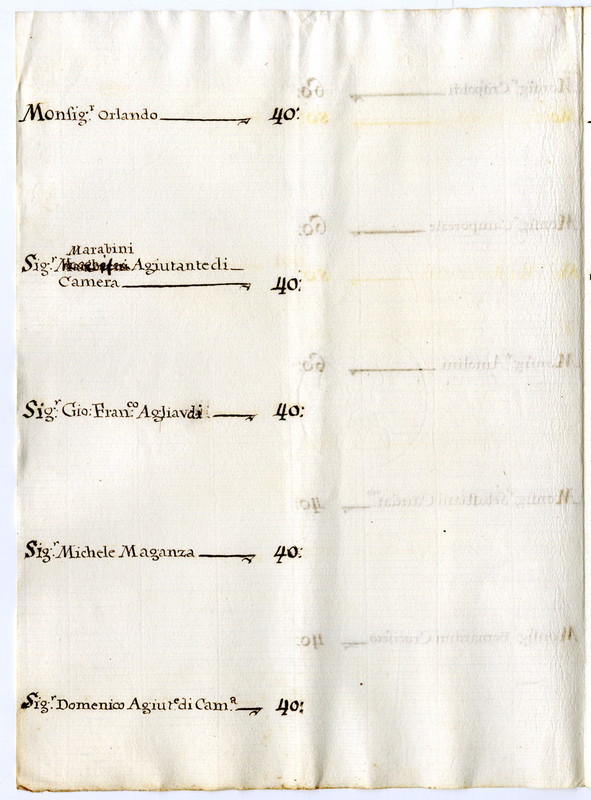 Monsig.r Orlando 40:
Marabini
Sig.r Agiutante di
Camera 40:
Sig.r Gio: Fran.co Agliaudi 40:
Sig.r Michele Maganza 40:
Sig.r Domenico Agiut.e di Cam.a 40: